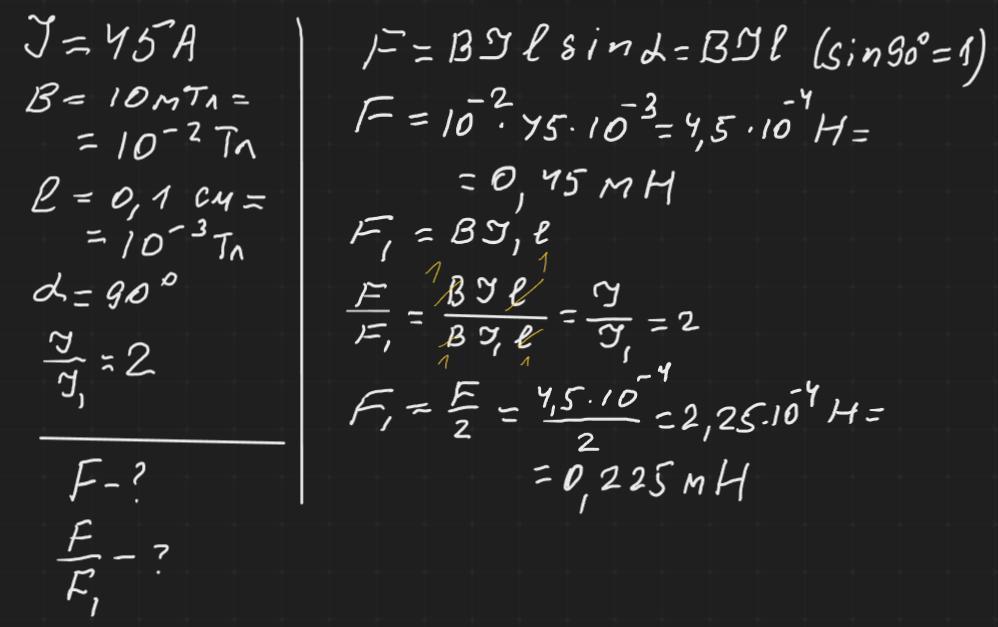 J = 45 A
B = 10 мТл =
= 10⁻² Тл
l = 0,1 см =
= 10⁻³ Тл
α = 90°
J/J₁ = 2
F - ?
F/F₁ - ?
F = BJl sin α = BJl (sin 90° = 1)
F = 10⁻² · 45 · 10⁻³ = 4,5 · 10⁻⁴ H =
= 0,45 мH
F₁ = BJ₁l
F/F₁ = BJl/BJ₁l = J/J₁ = 2
1 1
1 1
F₁ = F/2 = 4,5 · 10⁻⁴/2 = 2,25 · 10⁻⁴ H =
= 0,225 мH